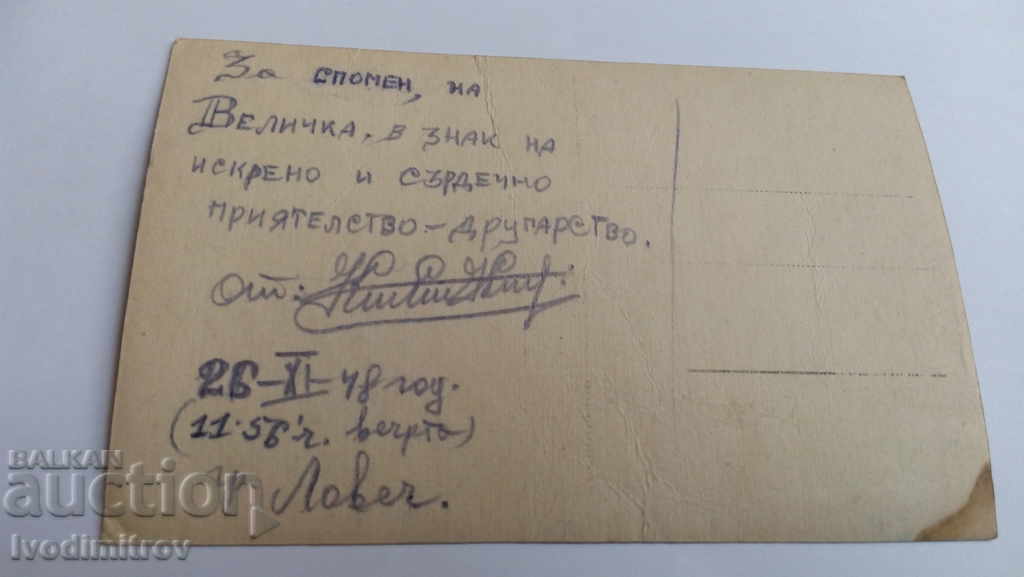 За спомен, на
Величка. в знак на
искрено и сърдечно
приятелство - другарство.
От:
26-XI-48 год.
(11.56 ч. вечрта)
Ловеч.
BALKAN
auction
Ivodimitrov